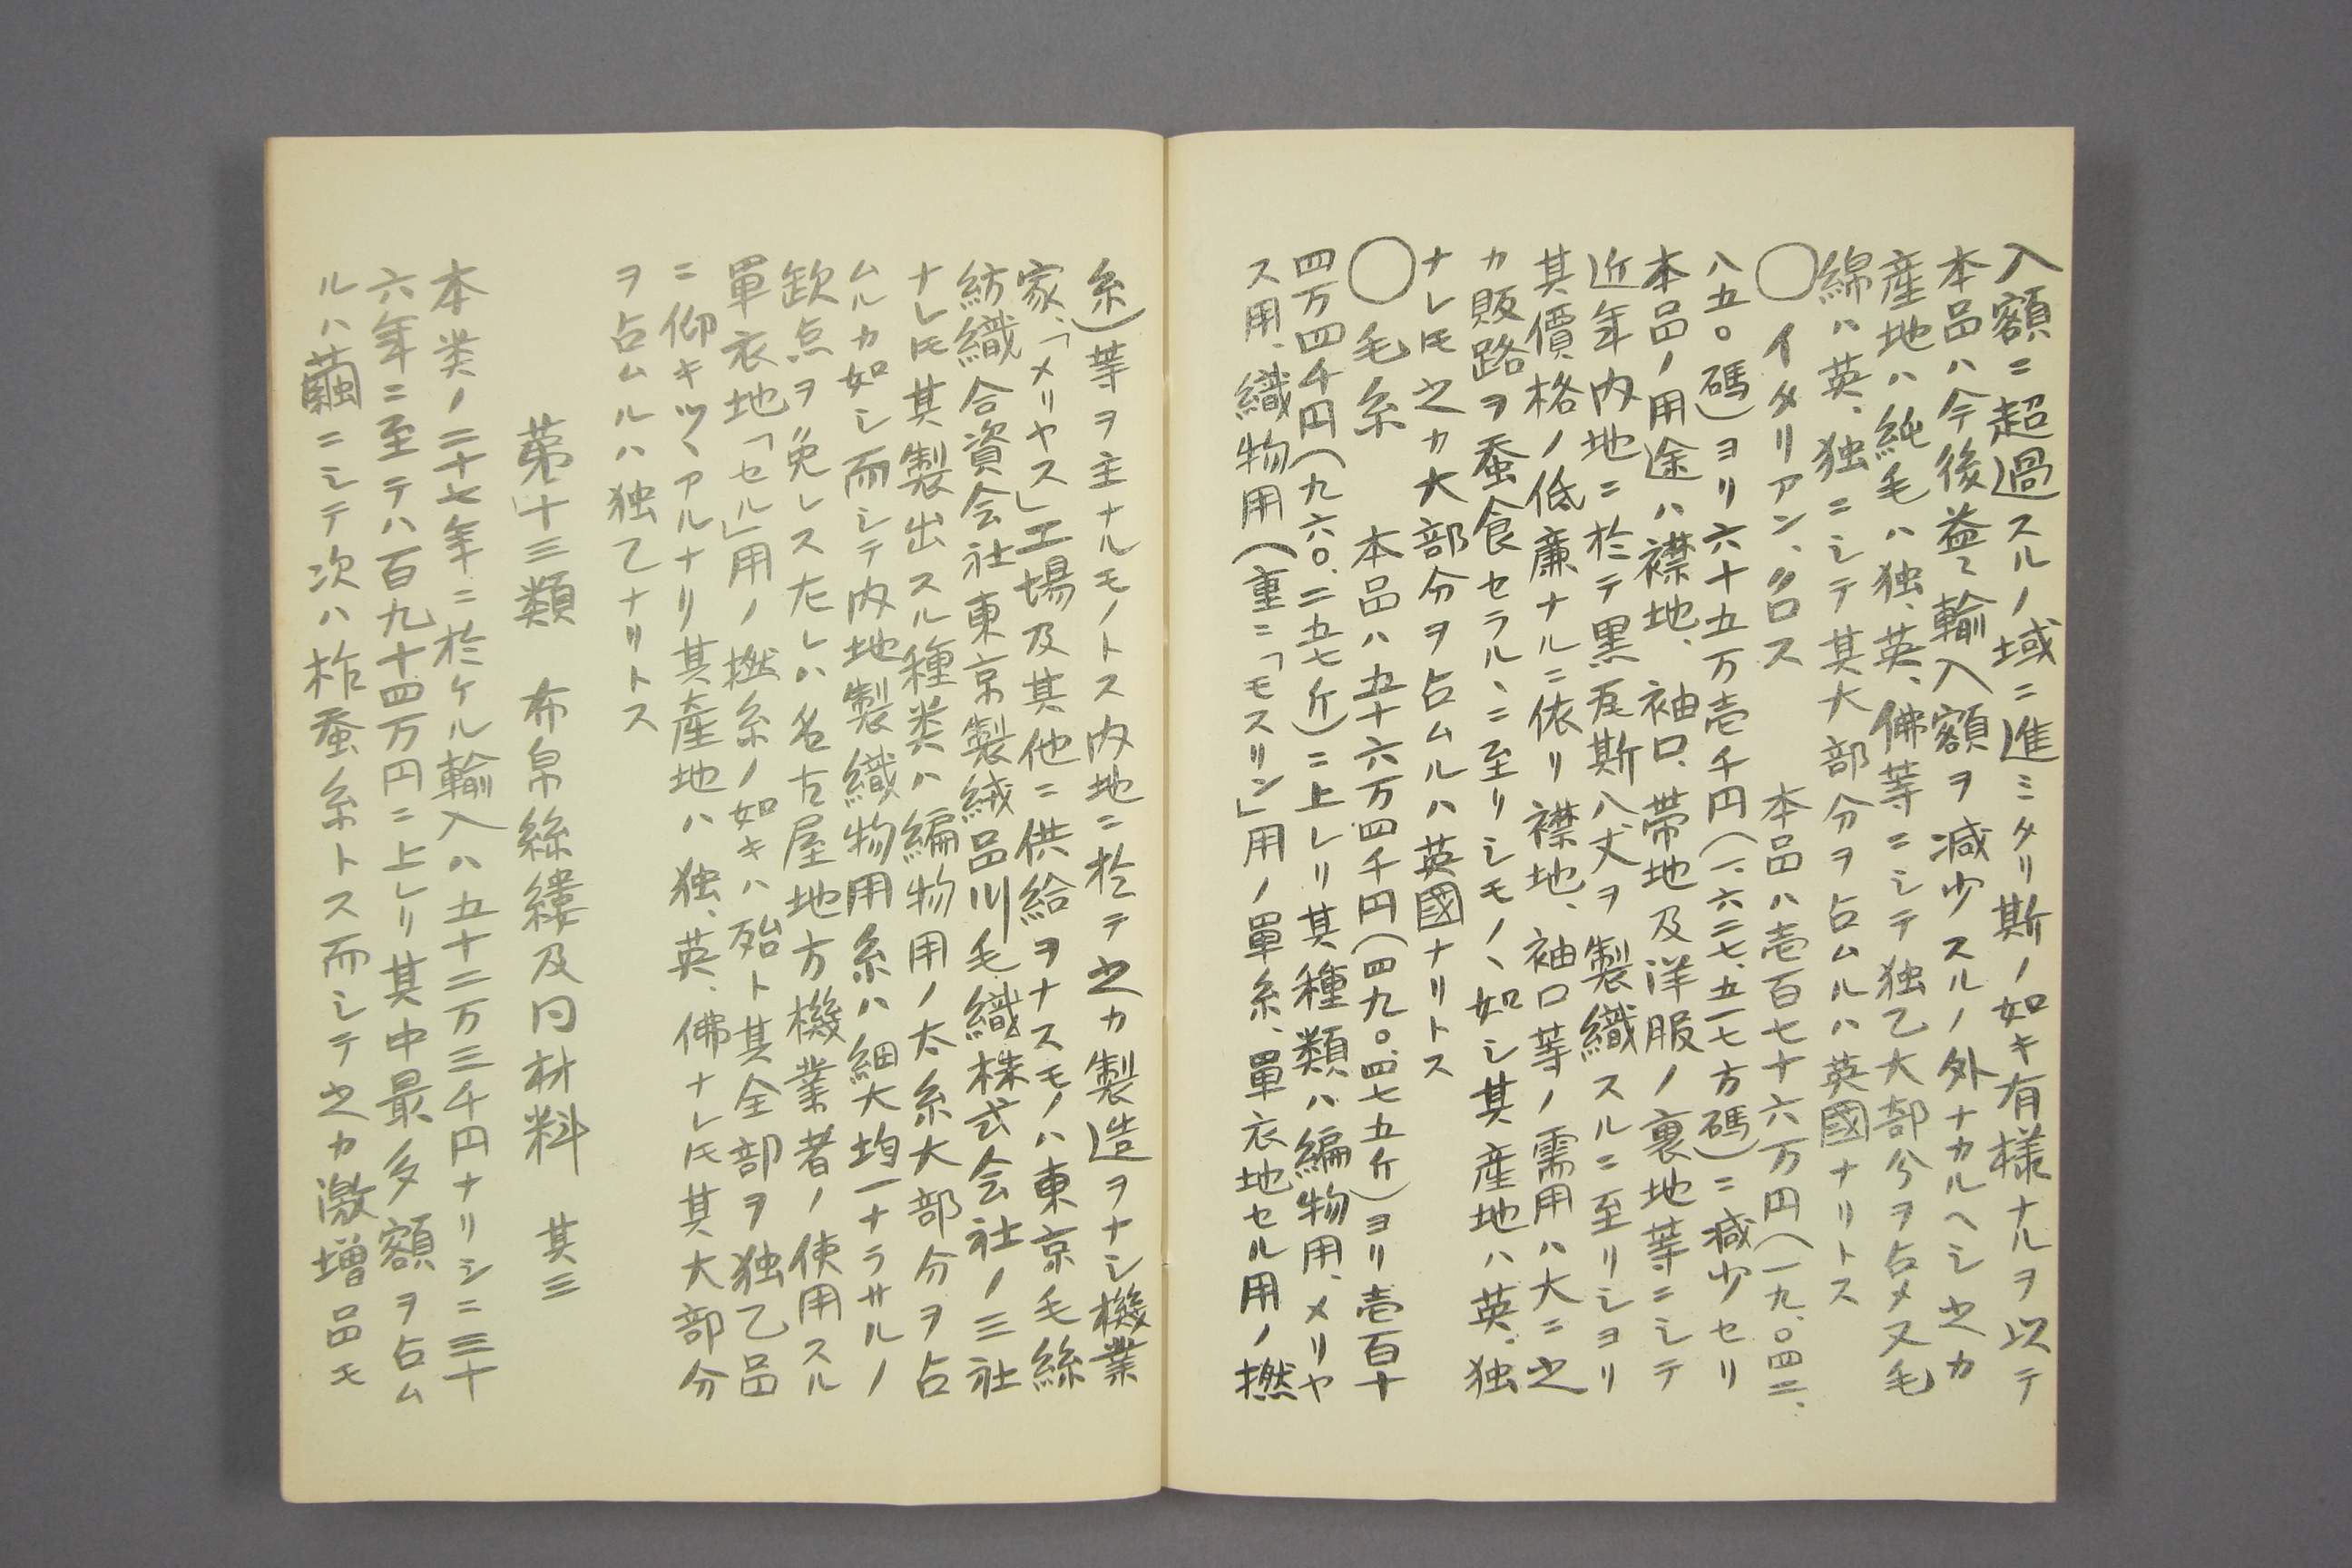 入額ニ超過スルノ域ニ進ミタリ斯ノ如キ有様ナルヲ以テ
本品ハ今後益々輸入額ヲ減少スルノ外ナカルヘシ之カ
産地ハ純毛ハ独、英、佛等ニシテ独乙大部分ヲ占メ又毛
綿ハ英、独ニシテ其大部分ヲ占ムルハ英國ナリトス
◯イタリアン、クロス　本品ハ壱百七十六万円(一九、〇四二、
八五〇碼)ヨリ六十五万壱千円(一、六二七、五一七方碼)ニ減少セリ
本品ノ用途ハ襟地、袖口、帯地及洋服ノ裏地等ニシテ
近年内地ニ於テ黒毛斯八丈ヲ製織スルニ至リショリ
其價格ノ低廉ナルニ依リ襟地、袖口等ノ需用ハ大ニ之
カ販路ヲ蚕食セラルヽニ至リシモノヽ如シ其産地ハ英、独
ナレ𪜈之カ大部分ヲ占ムルハ英國ナリトス
◯毛糸　本品ハ五十六万四千円(四九〇、四七五斤)ヨリ壱百十
四万四千円(九六〇、二五七斤)ニ上レリ其種類ハ編物用、メリヤ
ス用、織物用(重ニ「モスリン」用ノ單糸、單衣地セル用ノ撚
糸)等ヲ主ナルモノトス内地ニ於テ之カ製造ヲナシ機業
家、「メリヤス」工場及其他ニ供給ヲナスモノハ東京毛絲
紡織合資会社東京製絨品川毛織株式会社ノ三社
ナレ𪜈其製出スル種类ハ編物用ノ太糸大部分ヲ占
ムルカ如シ而シテ内地製織物用糸ハ細大均一ナラサルノ
欽点ヲ免レスサレハ名古屋地方機業者ノ使用スル
單衣地「セル」用ノ撚糸ノ如キハ殆ト其全部ヲ独乙品
ニ仰キツヽアルナリ其産地ハ独、英、佛ナレ𪜈其大部分
ヲ占ムルハ独乙ナリトス
第十三類　布帛絲縷及同材料　其三
本类ノ二十七年ニ於ケル輸入ハ五十二万三千円ナリシニ三十
六年ニ至テハ百九十四万円ニ上レリ其中最多額ヲ占ム
ルハ繭ニシテ次ハ柞蚕糸トス而シテ之カ激増品モ